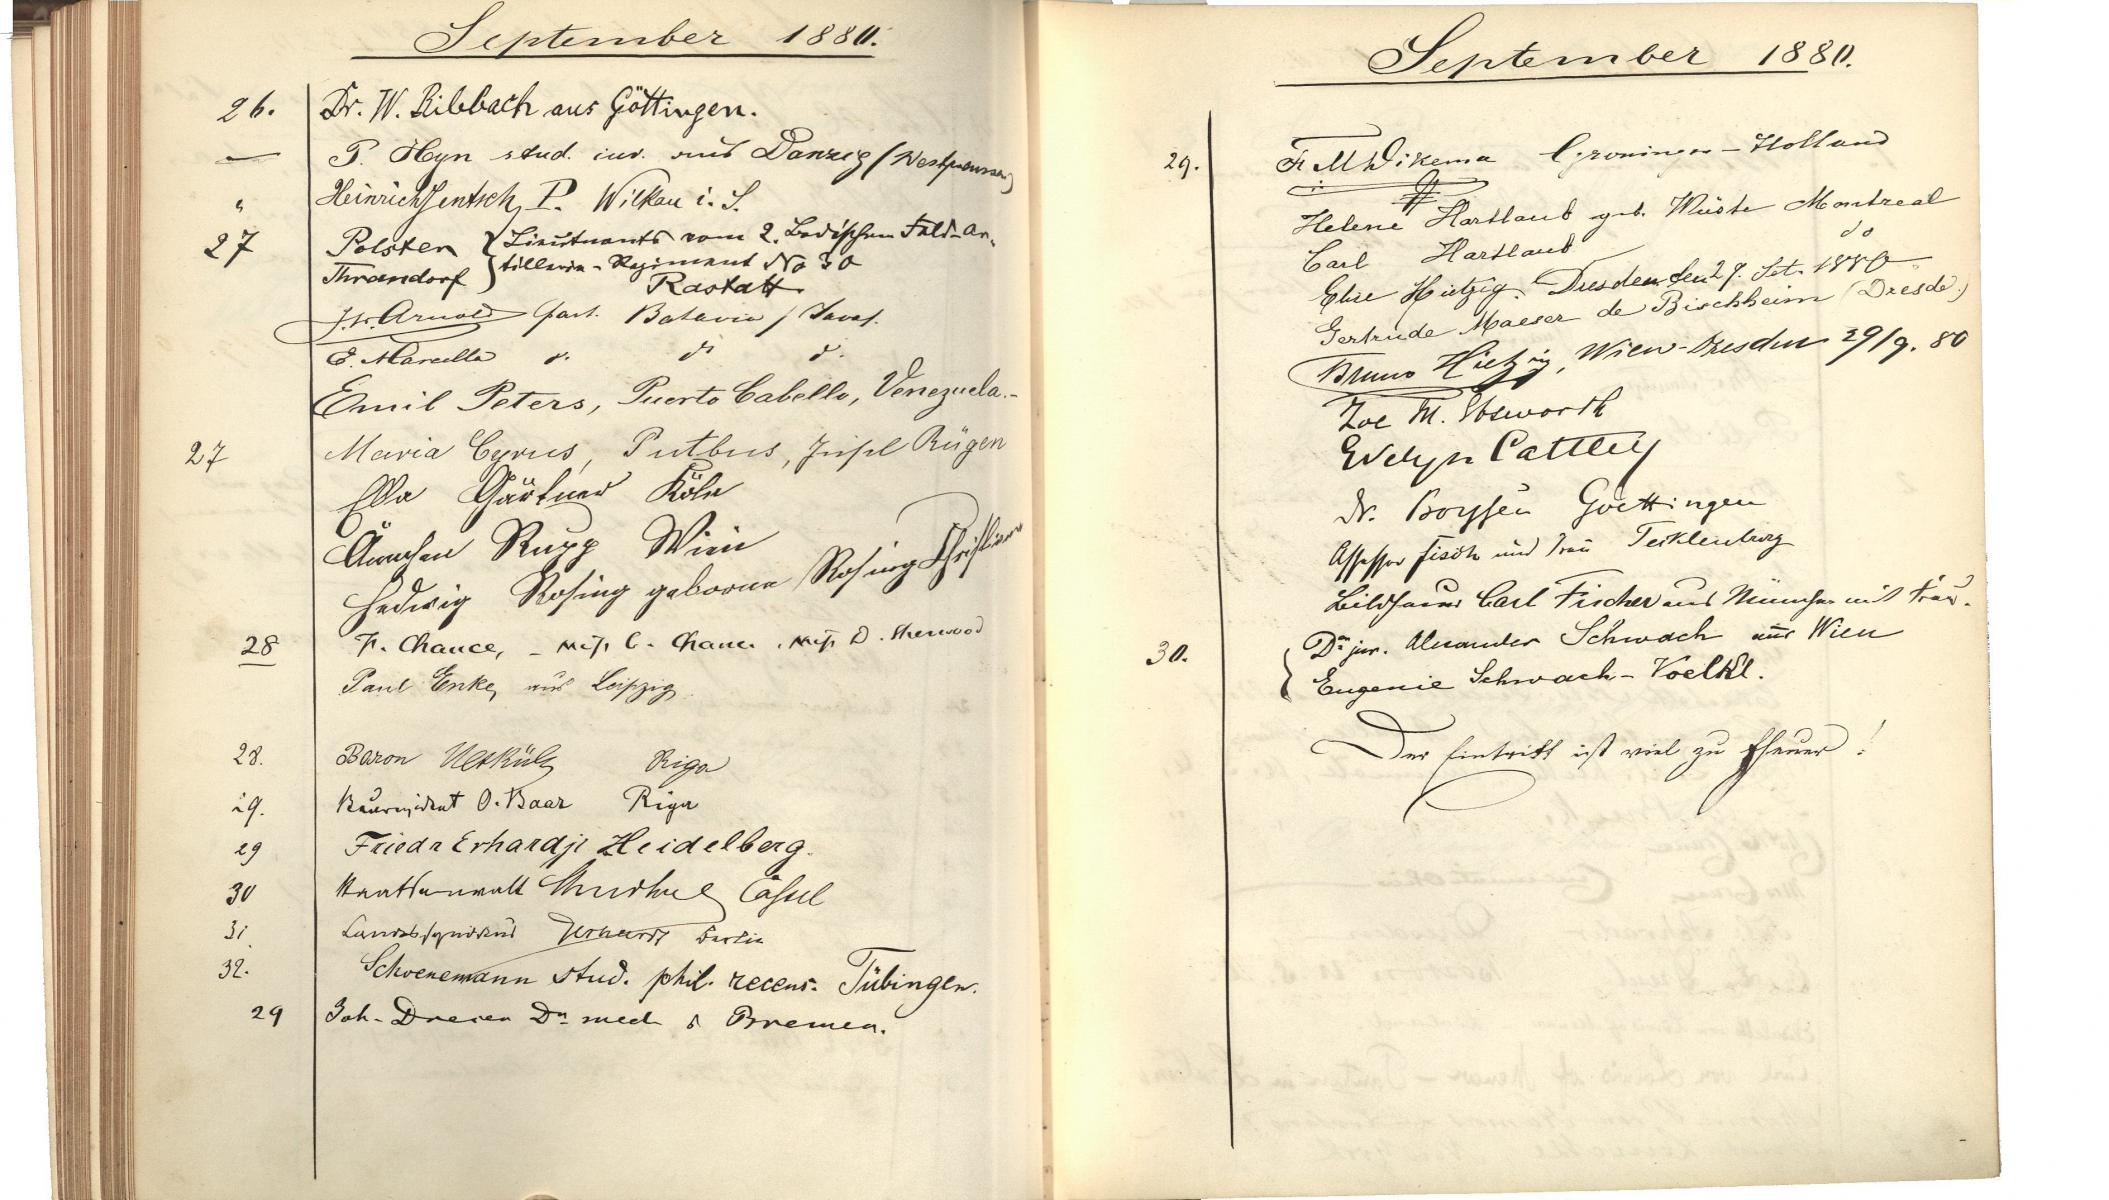 September 1880.
26. Dr. W. Ribbach aus Göttingen.
— P. Heyn stud. iur. aus Danzig (Westpreussen)
" Heinrich Jentsch, P. Wilkau i. S.
27 Polster } Lieutnants vom 2. Badischen Feld-Ar-
Thrandorf } tillerie-Regiment No 30
Rastatt
J. W. Arnold part. Batavia / Java/.
E. Marcella do do do
Emil Peters, Puerto Cabello, Venezuela.-
27 Maria Cyrus, Putbus, Insel Rügen
Ella Gärtner Köln
Ännchen Rupp Wien
Hedwig Rosing geborne Rosing
28 F. Chance, - Miss C. Chance. Miss D. Sherwood
Paul Enke, aus Leipzig.
28. Baron Uexküll Riga
29. O. Baar Riga
29 Friedr Erhardji Heidelberg.
30 Staatsanwalt Cassel
31 Landessyndikus Gerhardt Berlin
32. Schoenemann stud. phil. recens. Tübingen.
29 Joh. Dreier Dr med Bremen.
September 1880.
29. Fr M Wikema Groningen - Holland
Helene Hartlaub geb. Wüste Montreal
Carl Hartlaub do
Elise Hietzig. Dresden den 29. Set. 1880
Gertrude Maeser de Bischheim (Dresde.)
Bruno Hietzig, Wien-Dresden 29/9. 80
Zoe M. Ebsworth
Evelyn Cattley
Dr. Boysen Goettingen
Assessor Fisch und Frau Tecklenburg
Bildhauer Carl Fischer aus München mit Frau.
30. { Dr jur. Alexander Schwach aus Wien
Eugenie Schwach - Voelkl.
Der Eintritt ist viel zu theuer!